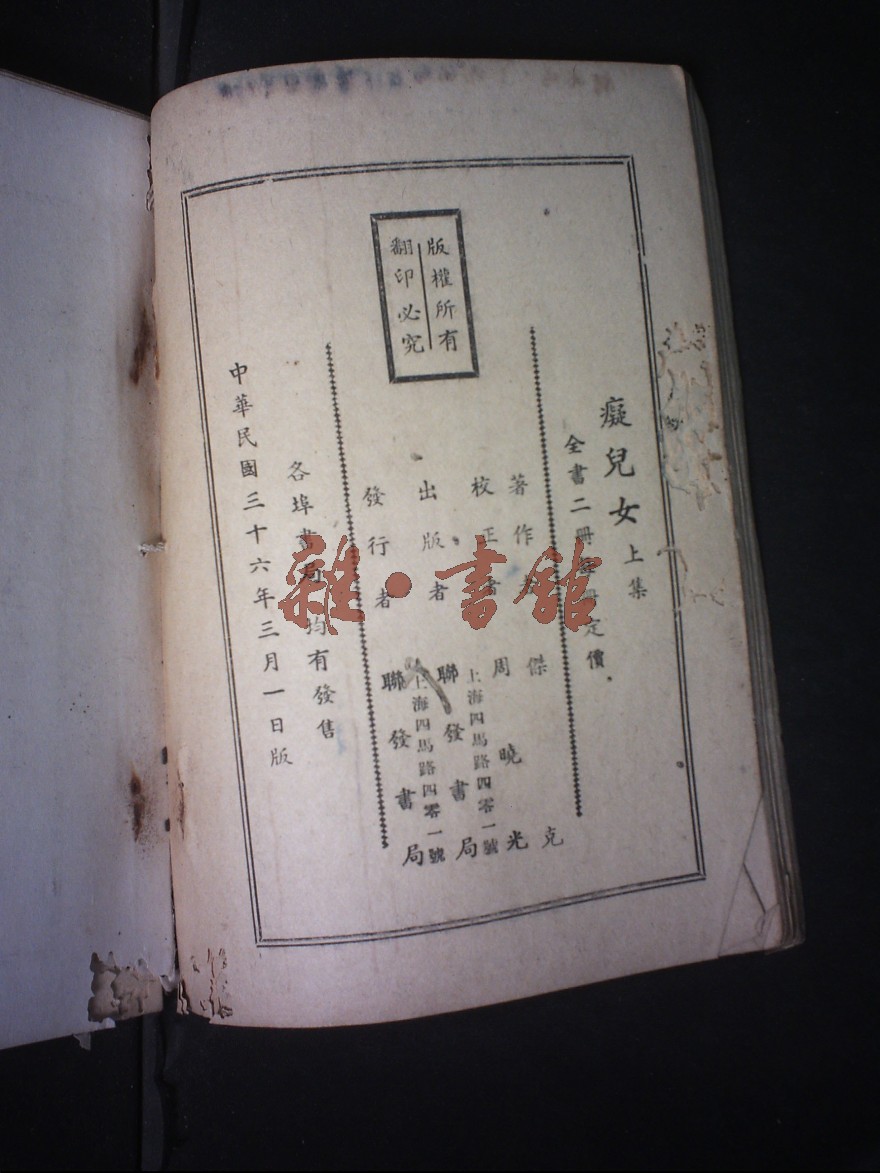 癡兒女 上集
全書二冊每冊定價
著作者 傑克
校正者 周曉光
出版者 聯發書局
上海四馬路四零一號
發行者 聯發書局
上海四馬路四零一號
版權所有
翻印必究
各埠書局均有發售
中華民國三十六年三月一日版
雜·書館